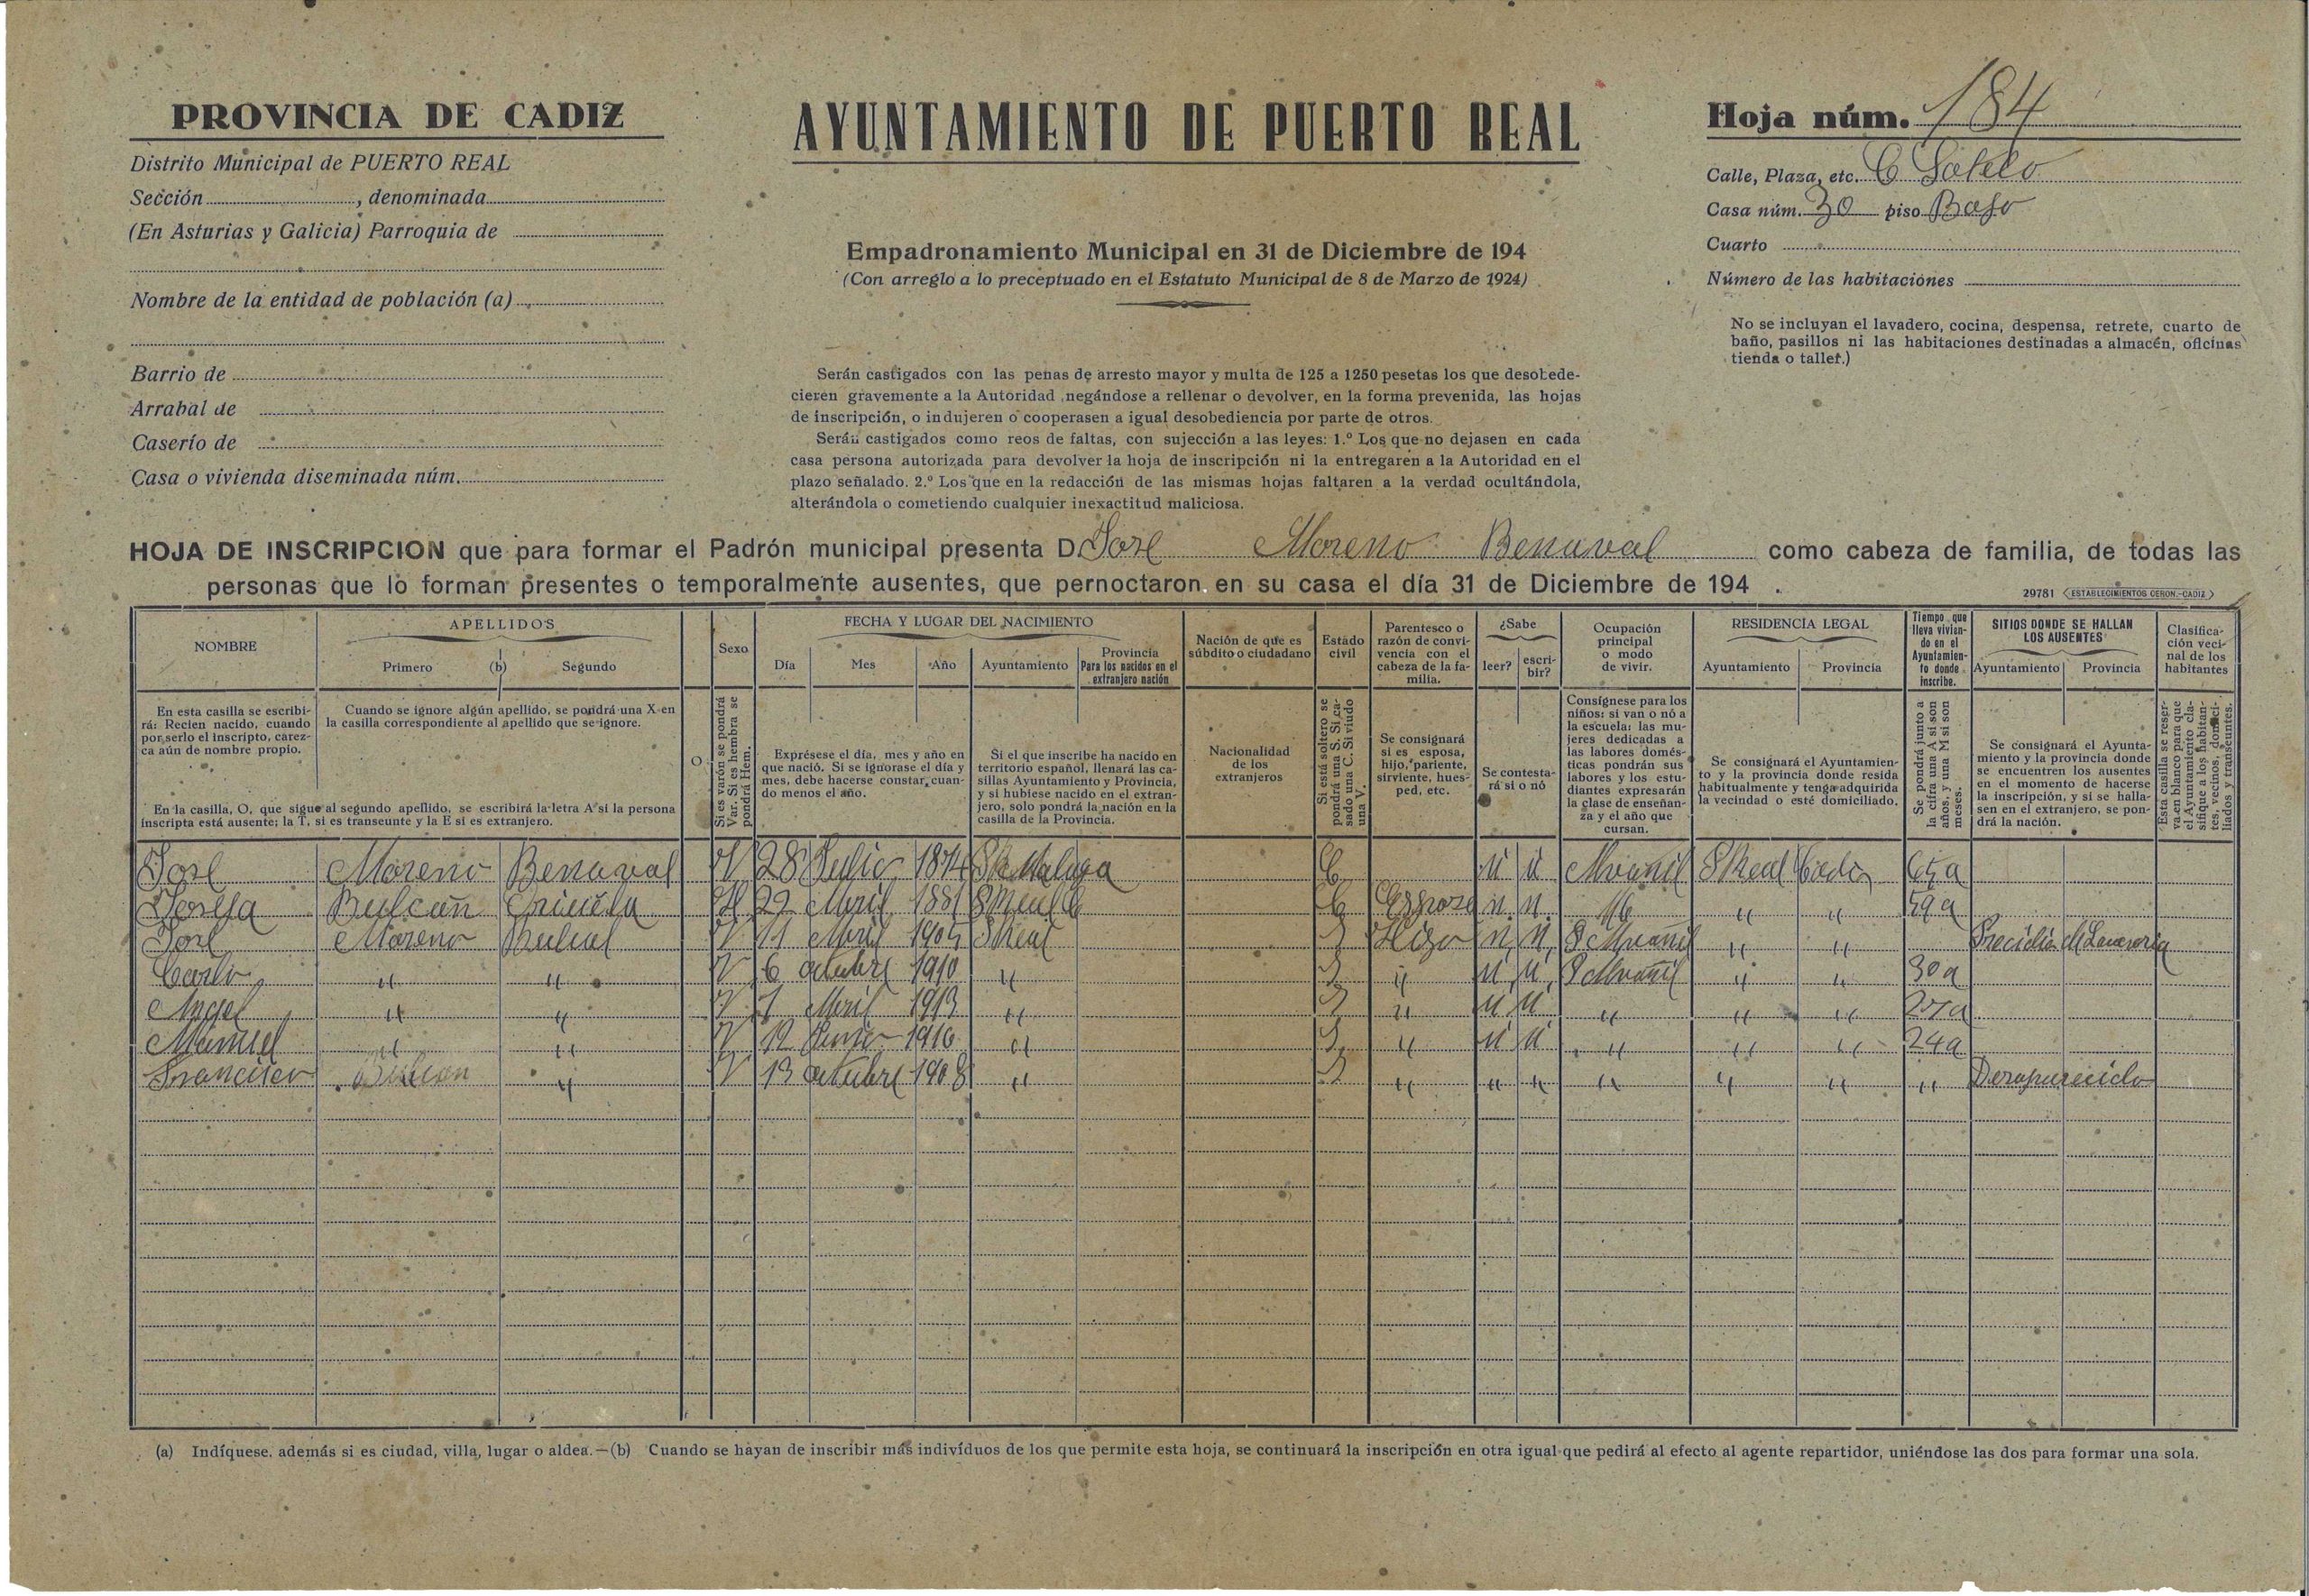 PROVINCIA DE CADIZ
Distrito Municipal de PUERTO REAL
Sección , denominada
(En Asturias y Galicia) Parroquia de
Nombre de la entidad de población (a)
Barrio de
Arrabal de
Caserío de
Casa o vivienda diseminada núm.
AYUNTAMIENTO DE PUERTO REAL
Empadronamiento Municipal en 31 de Diciembre de 194
(Con arreglo a lo preceptuado en el Estatuto Municipal de 8 de Marzo de 1924)
Serán castigados con las penas de arresto mayor y multa de 125 a 1250 pesetas los que desobede-
cieren gravemente a la Autoridad negándose a rellenar o devolver, en la forma prevenida, las hojas
de inscripción, o indujeren o cooperasen a igual desobediencia por parte de otros.
Serán castigados como reos de faltas, con sujección a las leyes: 1.º Los que no dejasen en cada
casa persona autorizada para devolver la hoja de inscripción ni la entregaren a la Autoridad en el
plazo señalado. 2.º Los que en la redacción de las mismas hojas faltaren a la verdad ocultándola,
alterándola o cometiendo cualquier inexactitud maliciosa.
Hoja núm. 184
Calle, Plaza, etc. C Sotelo
Casa núm. 30 piso Bajo
Cuarto
Número de las habitaciones
No se incluyan el lavadero, cocina, despensa, retrete, cuarto de
baño, pasillos ni las habitaciones destinadas a almacén, oficinas
tienda o taller.)
HOJA DE INSCRIPCION que para formar el Padrón municipal presenta D. Jose Moreno Benaval como cabeza de familia, de todas las
personas que lo forman presentes o temporalmente ausentes, que pernoctaron en su casa el día 31 de Diciembre de 194 .
29781 (ESTABLECIMIENTOS CERON.-CADIZ)
NOMBRE
APELLIDOS
Primero (b) Segundo
O
Sexo
FECHA Y LUGAR DEL NACIMIENTO
Día Mes Año Ayuntamiento
Provincia
Para los nacidos en el
extranjero nación
Nación de que es
súbdito o ciudadano
Estado
civil
Parentesco o
razón de convi-
vencia con el
cabeza de la fa-
milia.
¿Sabe
leer? escri-
bir?
Ocupación
principal
o modo
de vivir.
RESIDENCIA LEGAL
Ayuntamiento Provincia
Tiempo que
lleva vivien-
do en el
Ayuntamien-
to donde
inscribe.
SITIOS DONDE SE HALLAN
LOS AUSENTES
Ayuntamiento Provincia
Clasifica-
ción veci-
nal de los
habitantes
En esta casilla se escribi-
rá: Recien nacido, cuando
por serlo el inscripto, carez-
ca aún de nombre propio.
Cuando se ignore algún apellido, se pondrá una X en
la casilla correspondiente al apellido que se ignore.
En la casilla, O, que sigue al segundo apellido, se escribirá la letra A si la persona
inscripta está ausente; la T, si es transeunte y la E si es extranjero.
Si es varón se pondrá
Var. Si es hembra se
pondrá Hem.
Exprésese el día, mes y año en
que nació. Si se ignorase el día y
mes, debe hacerse constar, cuan-
do menos el año.
Si el que inscribe ha nacido en
territorio español, llenará las ca-
sillas Ayuntamiento y Provincia,
y si hubiese nacido en el extran-
jero, solo pondrá la nación en la
casilla de la Provincia.
Nacionalidad
de los
extranjeros
Si está soltero se
pondrá una S. Si ca-
sado una C. Si viudo
una V.
Se consignará
si es esposa,
hijo, pariente,
sirviente, hues-
ped, etc.
Se contesta-
rá si o nó
Consígnese para los
niños: si van o nó a
la escuela: las mu-
jeres dedicadas a
las labores domés-
ticas pondrán sus
labores y los estu-
diantes expresarán
la clase de enseñan-
za y el año que
cursan.
Se consignará el Ayuntamien-
to y la provincia donde resida
habitualmente y tenga adquirida
la vecindad o esté domiciliado.
Se pondrá junto a
la cifra una A si son
años, y una M si son
meses.
Se consignará el Ayunta-
miento y la provincia donde
se encuentren los ausentes
en el momento de hacerse
la inscripción, y si se halla-
sen en el extranjero, se pon-
drá la nación.
Esta casilla se reser-
va en blanco para que
el Ayuntamiento cla-
sifique a los habitan-
tes, vecinos, domici-
liados y transeuntes.
Jose Moreno Benaval V 28 Julio 1874 Malaga C Albañil P Real Cadiz
Josefa H Abril 1881 P Real C Esposa 59 a
Jose Moreno V 11 Abril P Real S Hijo P Albañil " "
Carlos " " V 6 octubre 1910 " S " P Albañil " " 30 a
Angel " " V Abril 1913 " S " " " "
Manuel " " V 12 Junio 1916 " S " " " " 24 a
Francisco " V 13 octubre 1908 " S " " " " " " " Desaparecido
(a) Indíquese. además si es ciudad, villa, lugar o aldea.—(b) Cuando se hayan de inscribir más indivíduos de los que permite esta hoja, se continuará la inscripción en otra igual que pedirá al efecto al agente repartidor, uniéndose las dos para formar una sola.